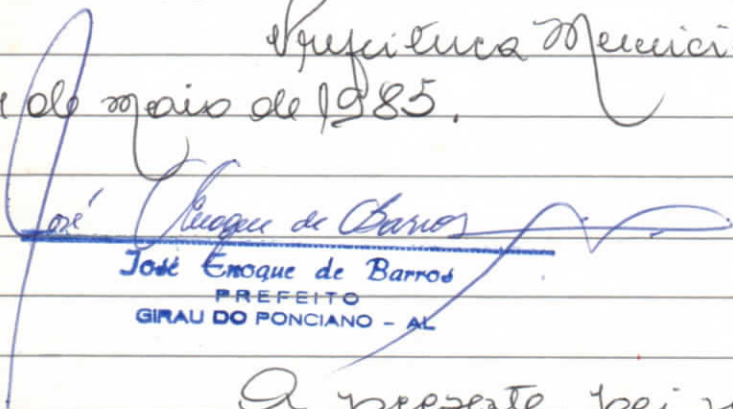 Prefeitura Munici
de maio de 1985.
José Enoque de Barros
José Enoque de Barros
PREFEITO
GIRAU DO PONCIANO - AL
A presente Lei